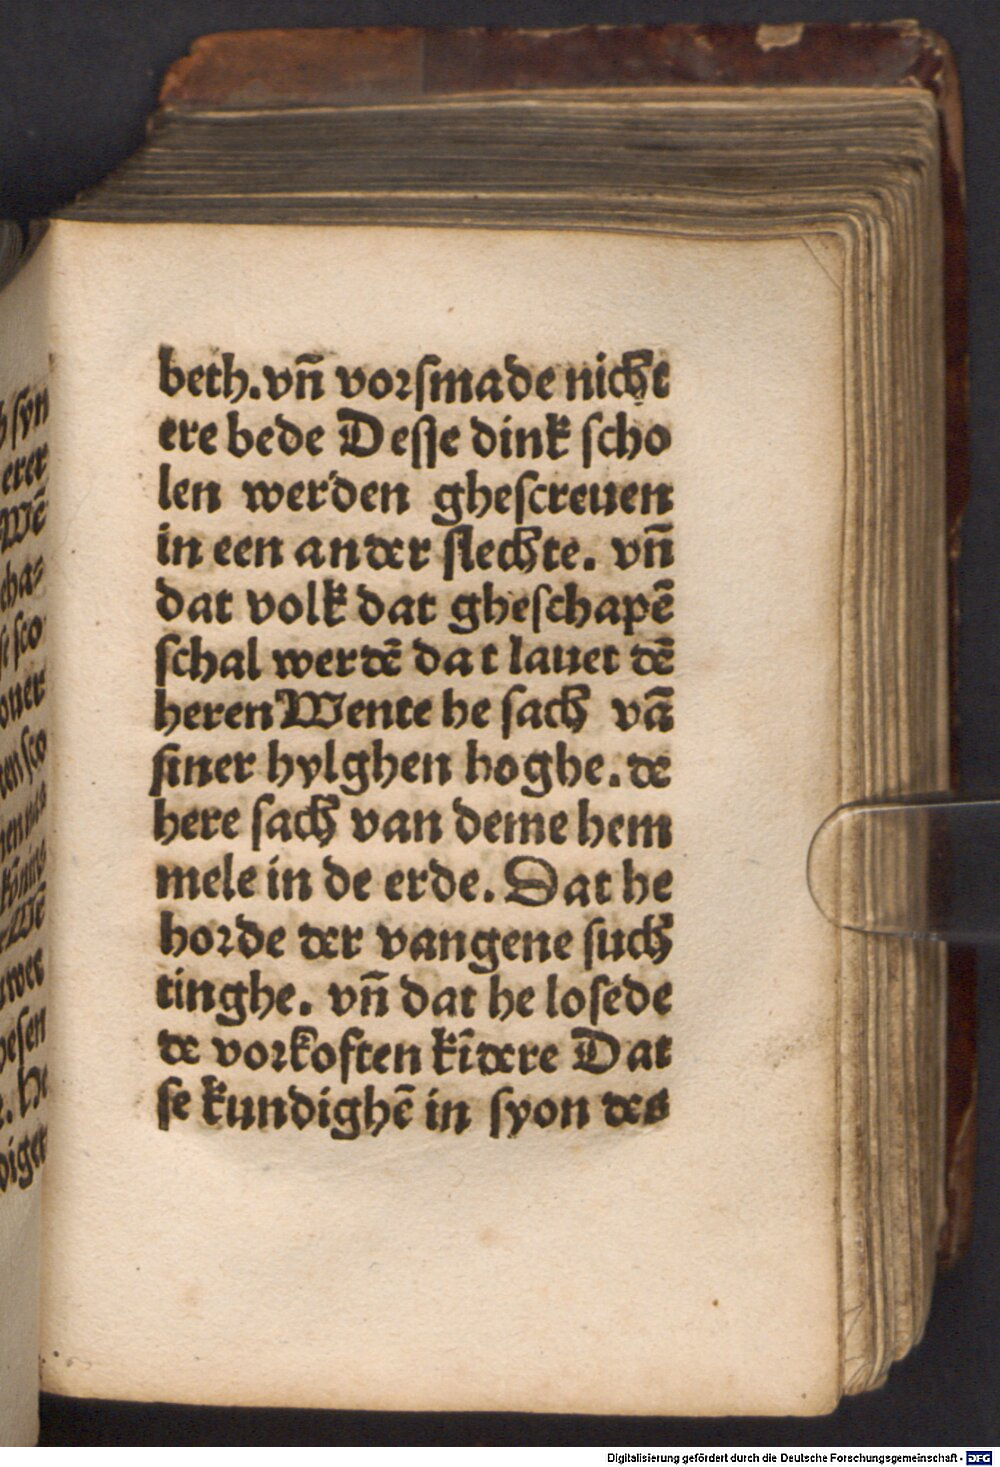 beth.vñ vorſmade nicht
ere bede Deſſe dink ſcho
len werden gheſcreuen
in een ander ſlechte. vñ
dat volk dat gheſchapē
ſchal werdē dat lauet dē
heren Wente he ſach vā
ſiner hylghen hoghe. de
here ſach van deme hem
mele in de erde. Dat he
horde der vangene ſuch
tinghe. vñ dat he loſede
de vorkoften kīdere Dat
ſe kundighē in ſyon des
Digitalisierung gefördert durch die Deutsche Forschungsgemeinschaft - DFG